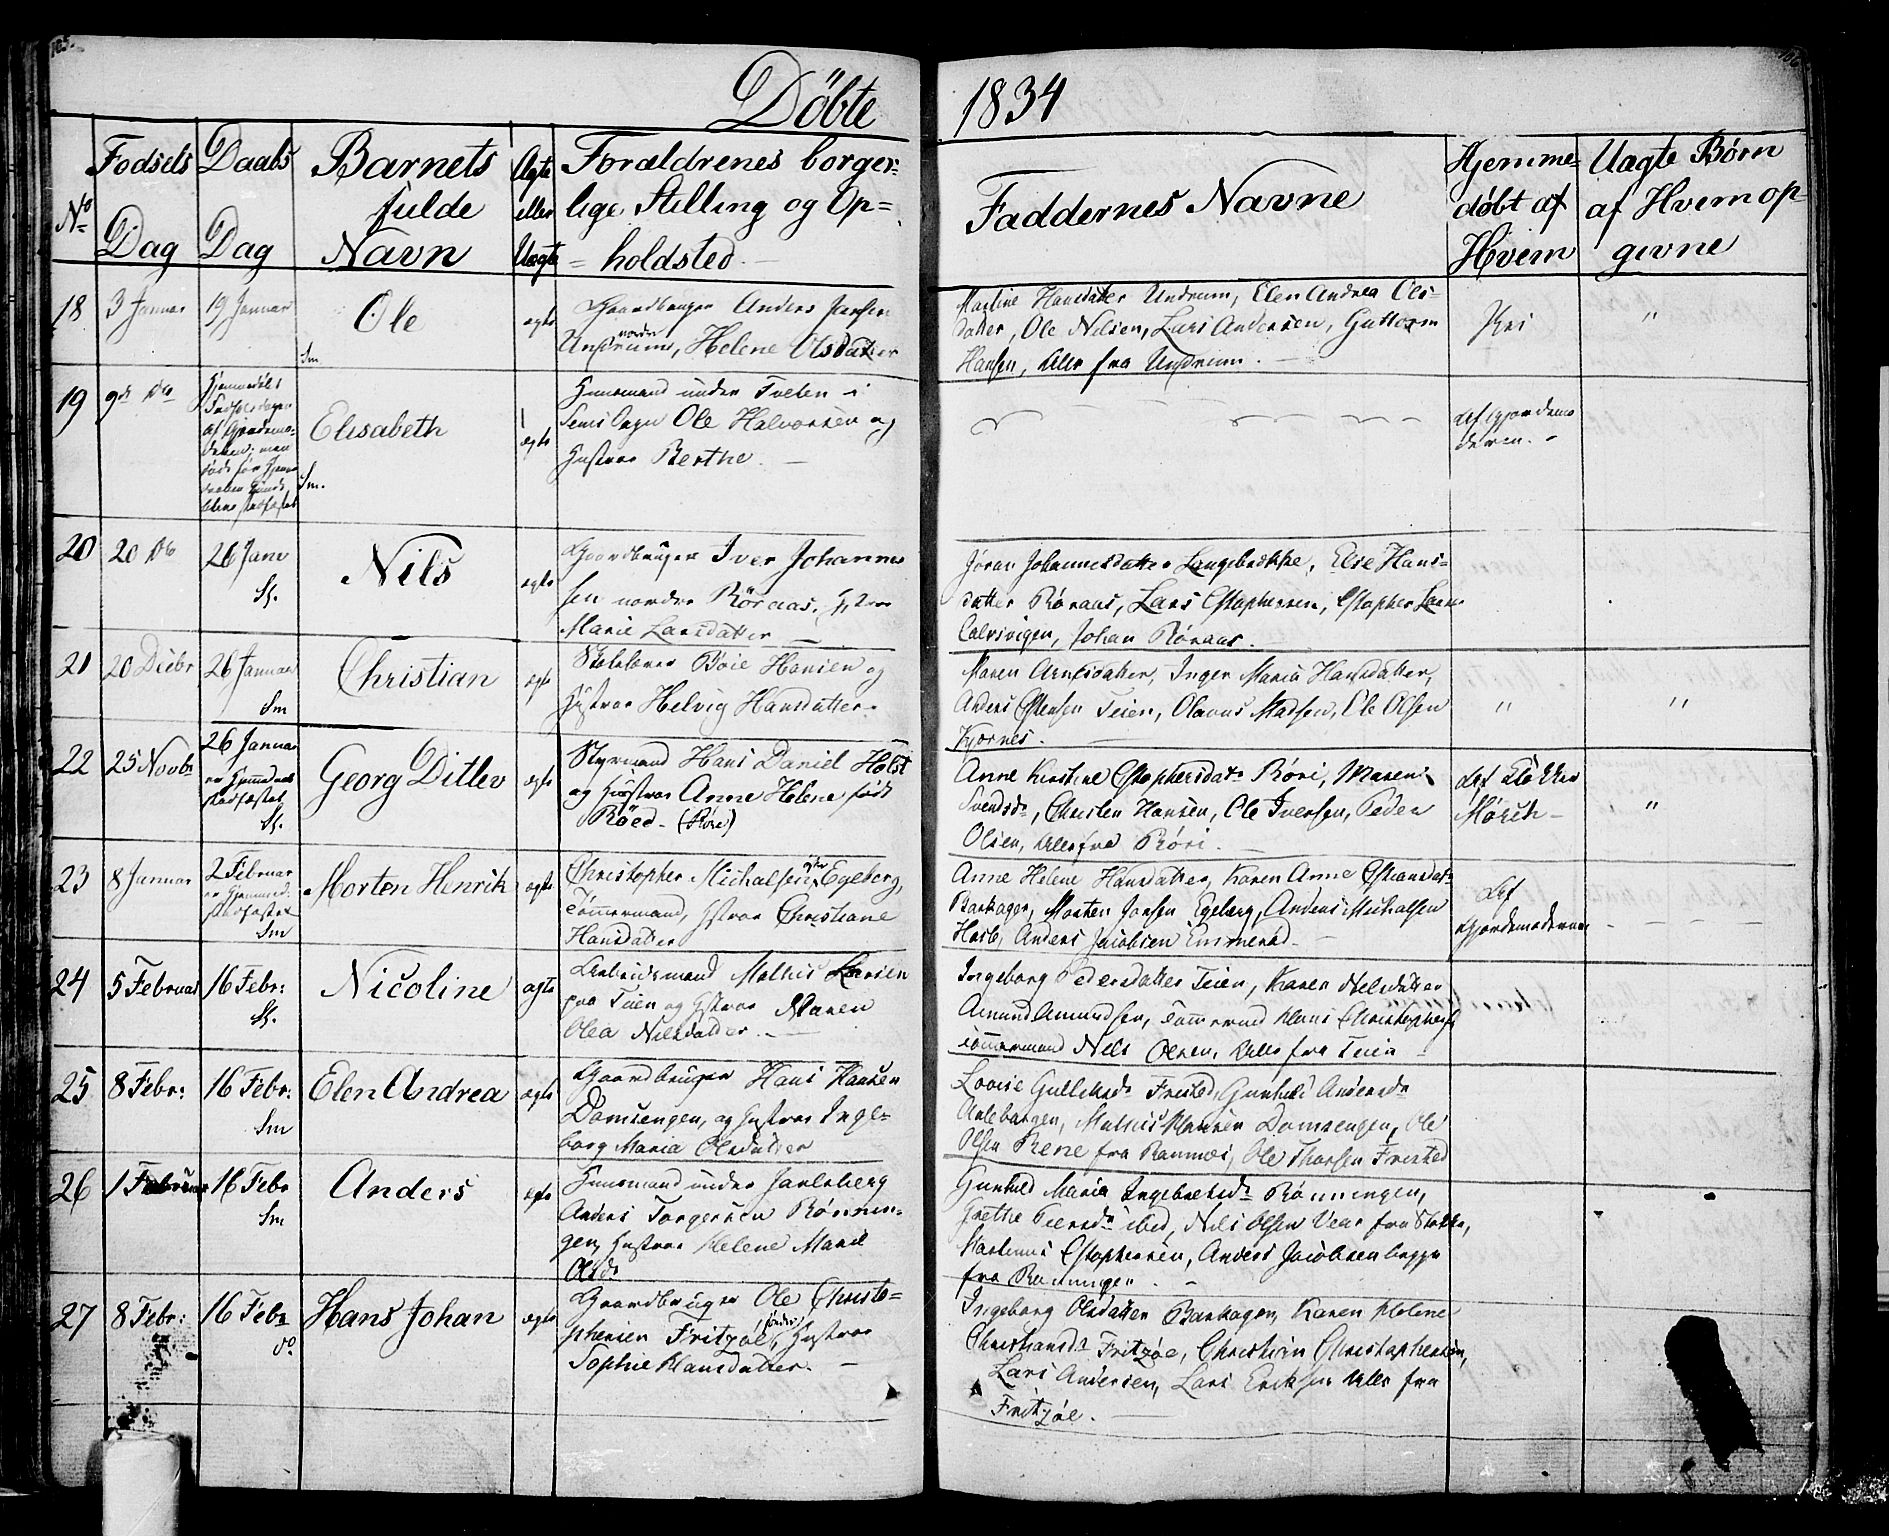 185.
186
Döbte
1834
No
Fodsels
Dag
Daabs
Dag
Barnets
fulde
Navn
Ægte
eller
Uægte
Forældrenes borger-
lige Stilling og Op=
= holdsted.
Faddernes Navne
Hjemme-
döbt af
Hvem
Uagte Börn
af Hvem op-
givne
18
3 Januar
19 Januar
Ole
Sm
ægte
Gaardbruger Anders Hansen
Undrum nordre, Helene Olsdatter
Martine Hansdatter Undrum, Elen Andrea Ols-
datter, Ole Nilsen, Lars Andersen, Guttorm
Hansen, Alle fra Undrum.
"
19
9de Do
Hjemmedöbt
af Gjordemo-
deren; men
död för Hjemme
daaben kunde
blive stadfæstet
Elisabeth
Sm.
ægte
Huusmand under Tveten i
Sems Sogn Ole Halvorsen og
Hustrue Berthe.
Af Gjordemo
deren.
20
20 Do
26 Janu
Sl.
Nils
ægte
Gaardbruger Iver Johanne
sen nordre Röraas, Hstrue
Marie Larsdatter
Jöran Johannesdatter Langebække, Else Hans-
datter Röraas, Lars Cstophersen, Cstopher Larse
Calvsvigen, Johan Röraas.
21
20 Decbr
26 Januar
Sm
Christian
ægte
Skolelærer Boie Hansen og
Hustrue Helvig Hansdatter.
Maren Arnesdatter, Inger Maria Hansdatter,
Anders Cstensen Teien, Olavus Madsen, Ole Olsen
Kjærnes.
"
"
22
25 Novbr
26 Januar
er Hjemmedaab
stadfæstet
Sl.
Georg Ditlev
ægte
Styrmand Hans Daniel Holst
og Hustrue Anne Helene født
Röed. (Röre)
Anne Kirstine Cstophersdatr Röri, Maren
Svendsdr, Christen Hansen, Ole Iversen, Peder
Olsen, Alle fra Röri.
Af Klokker
Mörch
"
23
8 Januar
2 Februar
er Hjemmed.
stadfæstet
Sm
Morten Henrik
ægte
Christopher Michalsen Egeberg,
Tömmermand, Hstrue Christiane
Hansdatter
Anne Helene Hansdatter, Karen Anne Cstiansdatr
Barkager, Morten Jonsen Egeberg, Anders Michalsen
Hasle, Anders Jacobsen Emmeröd.
Af
Gjordemoderen
24
5 Februar
16 Febr:
Sl.
Nicoline
ægte
Arbeidsmand Mathis Larsen
paa Teien og Hstrue Maren
Olea Nilsdatter.
Ingeborg Pedersdatter Teien, Karen Nilsdatter
Amund Amundsen, Tömmermd Hans Christophers
Tömmermand Nils Olsen, Alle fra Teien
25
8 Febr:
16 Febr:
Sm
Elen Andrea
ægte
Gaardbruger Hans Hansen
Damsengen, og Hustrue Inge-
borg Maria Olsdatter
Lovise Gulliksdr Frested, Gunhild Andersdr
Auleborgen, Mathis Hansen Damsengen, Ole
Olsen Rene fra Ramnæs, Ole Thorsen Frested
26
1 Februar
16 Febr
Sm
Anders
ægte
Huusmand under Jarlsberg
Anders Torgersen Rönnin-
gen, Hustrue Helene Marie
Olsdr
Gunhild Maria Ingebretsdr Rönningen,
Grethe Peersdr ibid, Nils Olsen Vear fra Stokke,
Martinus Cstophersen, Anders Jacobsen begge
fra Rönningen.
27
8 Febr:
16 Febr
Do
Hans Johan
ægte
Gaardbruger Ole Christo-
phersen Fritzöe (söndre), Hustrue
Sophie Hansdatter.
Ingeborg Olsdatter Barkager, Karen Helene
Christiansdr Fritzöe, Christian Christophersen,
Lars Andersen, Lars Eriksen Alle fra
Fritzöe.